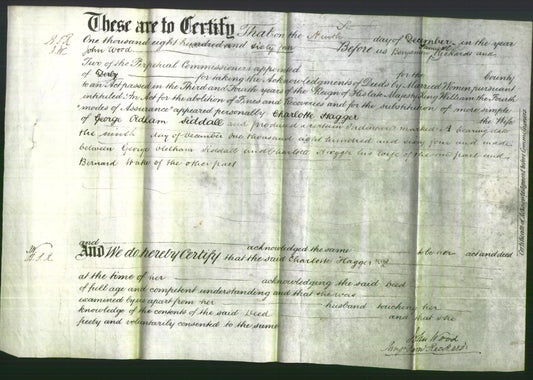 These are to Certify That on the Ninth day of December in the year
One thousand eight hundred and sixty Before us Benjamin and
John Wood
Two of the Perpetual Commissioners appointed for the County
of Derby for taking the Acknowledgments of Deeds by Married Women pursuant
to an Act passed in the Third and Fourth years of the Reign of His late Majesty King William the Fourth
intituled "An Act for the abolition of Fines and Recoveries and for the substitution of more simple
"modes of Assurance" appeared personally Charlotte Hagger the Wife
of George Siddall and produced a certain Indenture marked A bearing date
the ninth day of December one thousand eight hundred and sixty four and made
between George Siddall and Charlotte Hagger his wife of the one part and
Bernard Wake of the other part
and acknowledged the same to be her act and deed
And We do hereby Certify that the said Charlotte Hagger was
at the time of her acknowledging the said Deed
of full age and competent understanding and that she was
examined by us apart from her husband touching her
knowledge of the contents of the said Deed and that she
freely and voluntarily consented to the same
John Wood